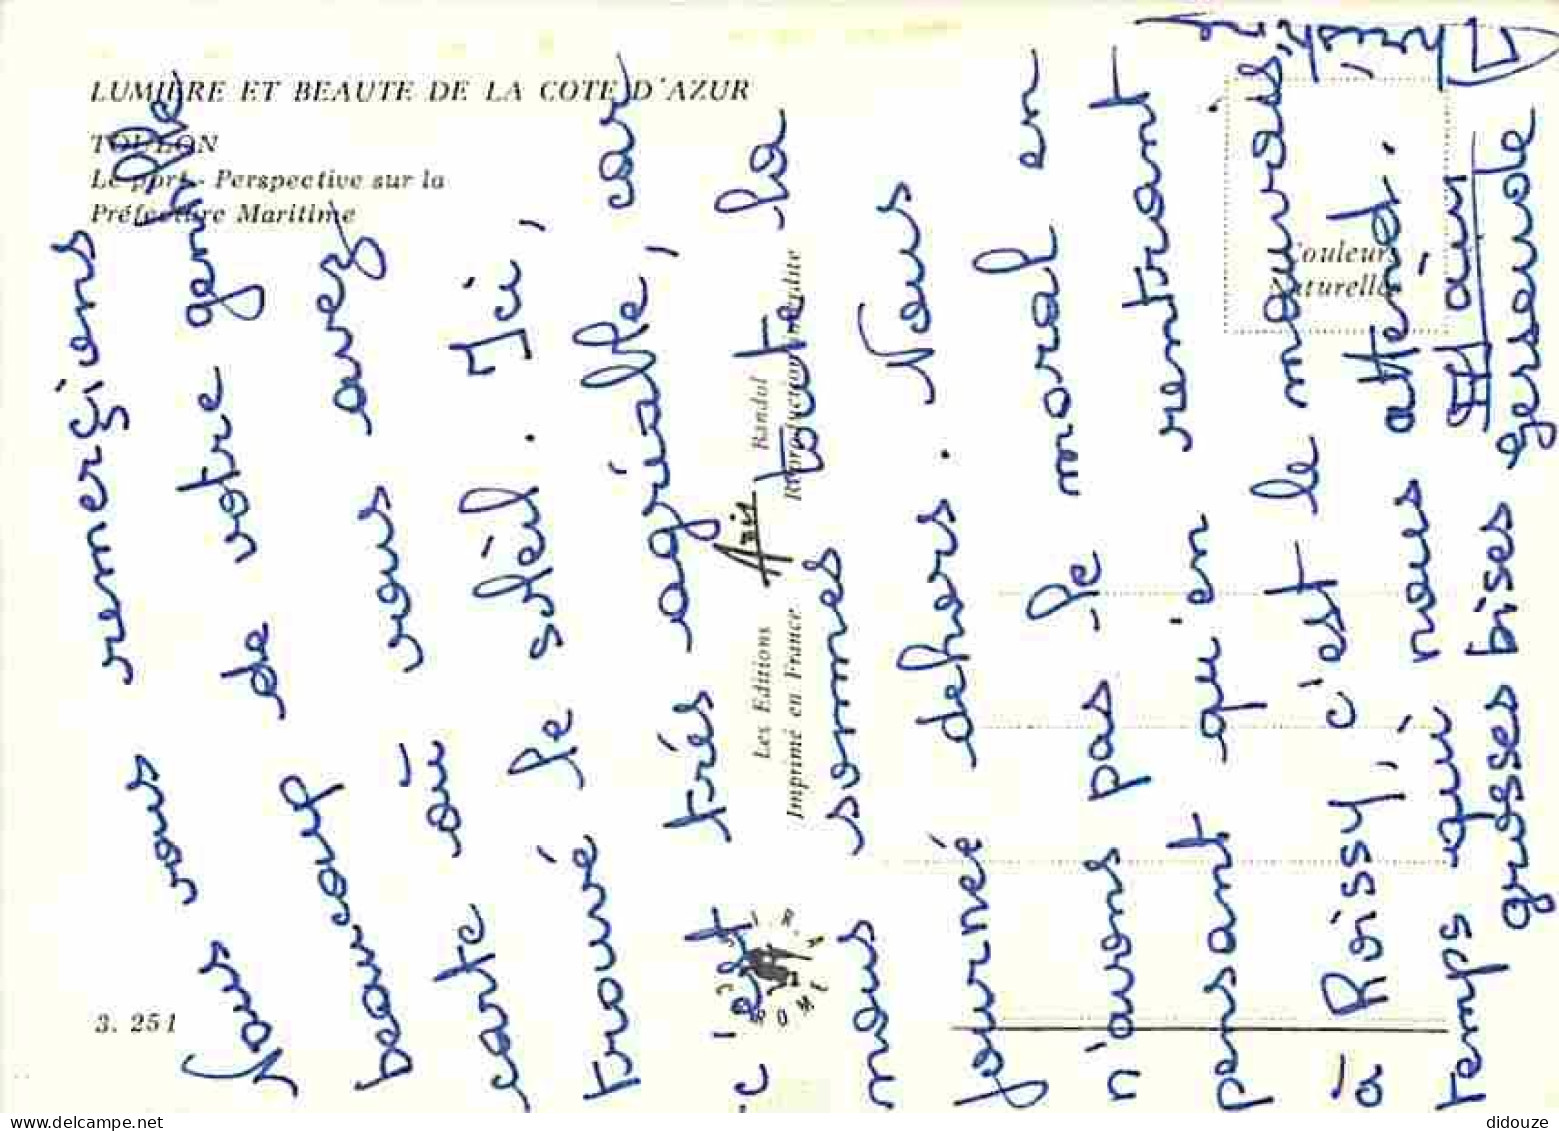 LUMIERE ET BEAUTE DE LA COTE D'AZUR
TOULON
Le port - Perspective sur la
Préfecture Maritime
Couleurs
Naturelles
Les Editions Aris Bandol
Imprimé en France Reproduction interdite
CIM.A
ROME
3. 251
Nous vous remerçiens
beaucoup de votre gentille
carte où vous avez
trouvé le soleil. Ici,
c'est très agréable, car
nous sommes toute la
journée dehors. Nous
n'avons pas le moral en
pensant qu'en rentrant
à Roissy, c'est le mauvais
temps qui nous attend.
grosses bises Gersende
Alain
Christine
didouze